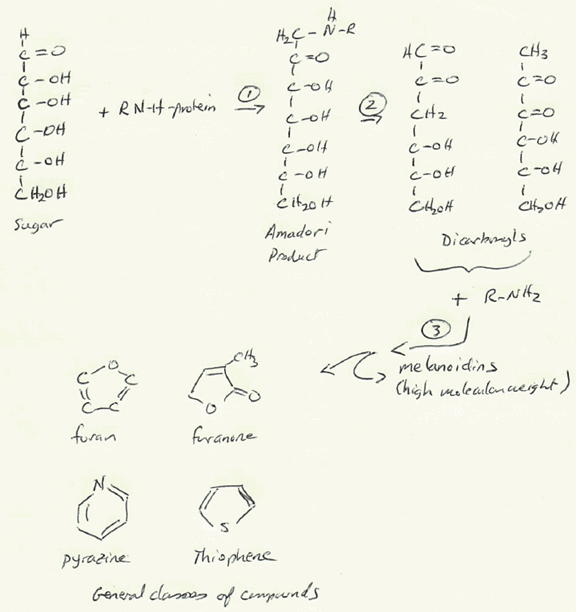 H
C=O
C-OH
C-OH
C-OH
C-OH
CH2OH
Sugar
+ RNH-protein
①
H
H2C-N-R
C=O
C-OH
C-OH
C-OH
C-OH
CH2OH
Amadori
Product
②
HC=O
C=O
CH2
C-OH
C-OH
CH2OH
CH3
C=O
C=O
C-OH
C-OH
CH2OH
Dicarbonyls
+ R-NH2
③
melanoidins
(high molecular weight)
O
C C
C-C
furan
CH3
O
O
furanone
N
pyrazine
S
Thiophene
General classes of compounds